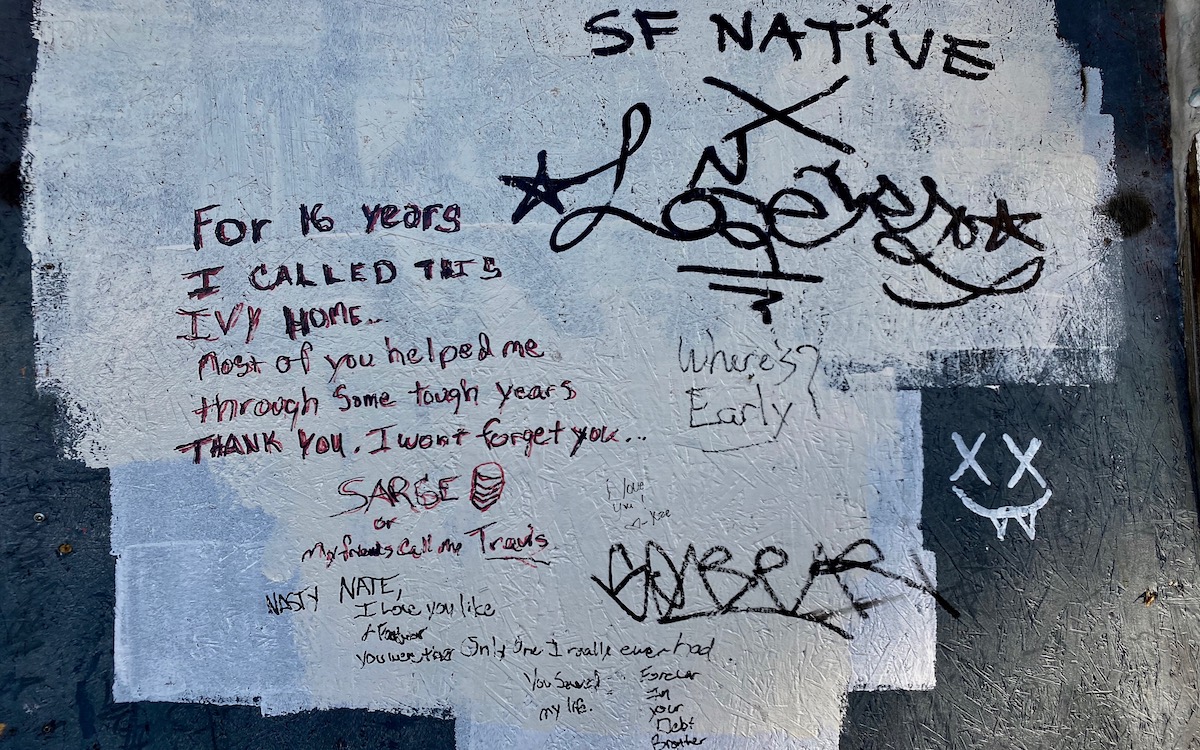 SF NATIVE
For 16 years
I CALLED THIS
IVY HOME..
Most of you helped me
through some tough years
THANK YOU. I wont forget you...
SARGE
or
My friends call me Travis
Where's
Early?
i love
NASTY NATE,
I love you like
you were the Only One I really ever had
You Saved
my life.
Forever
In
your
Debt
Brother